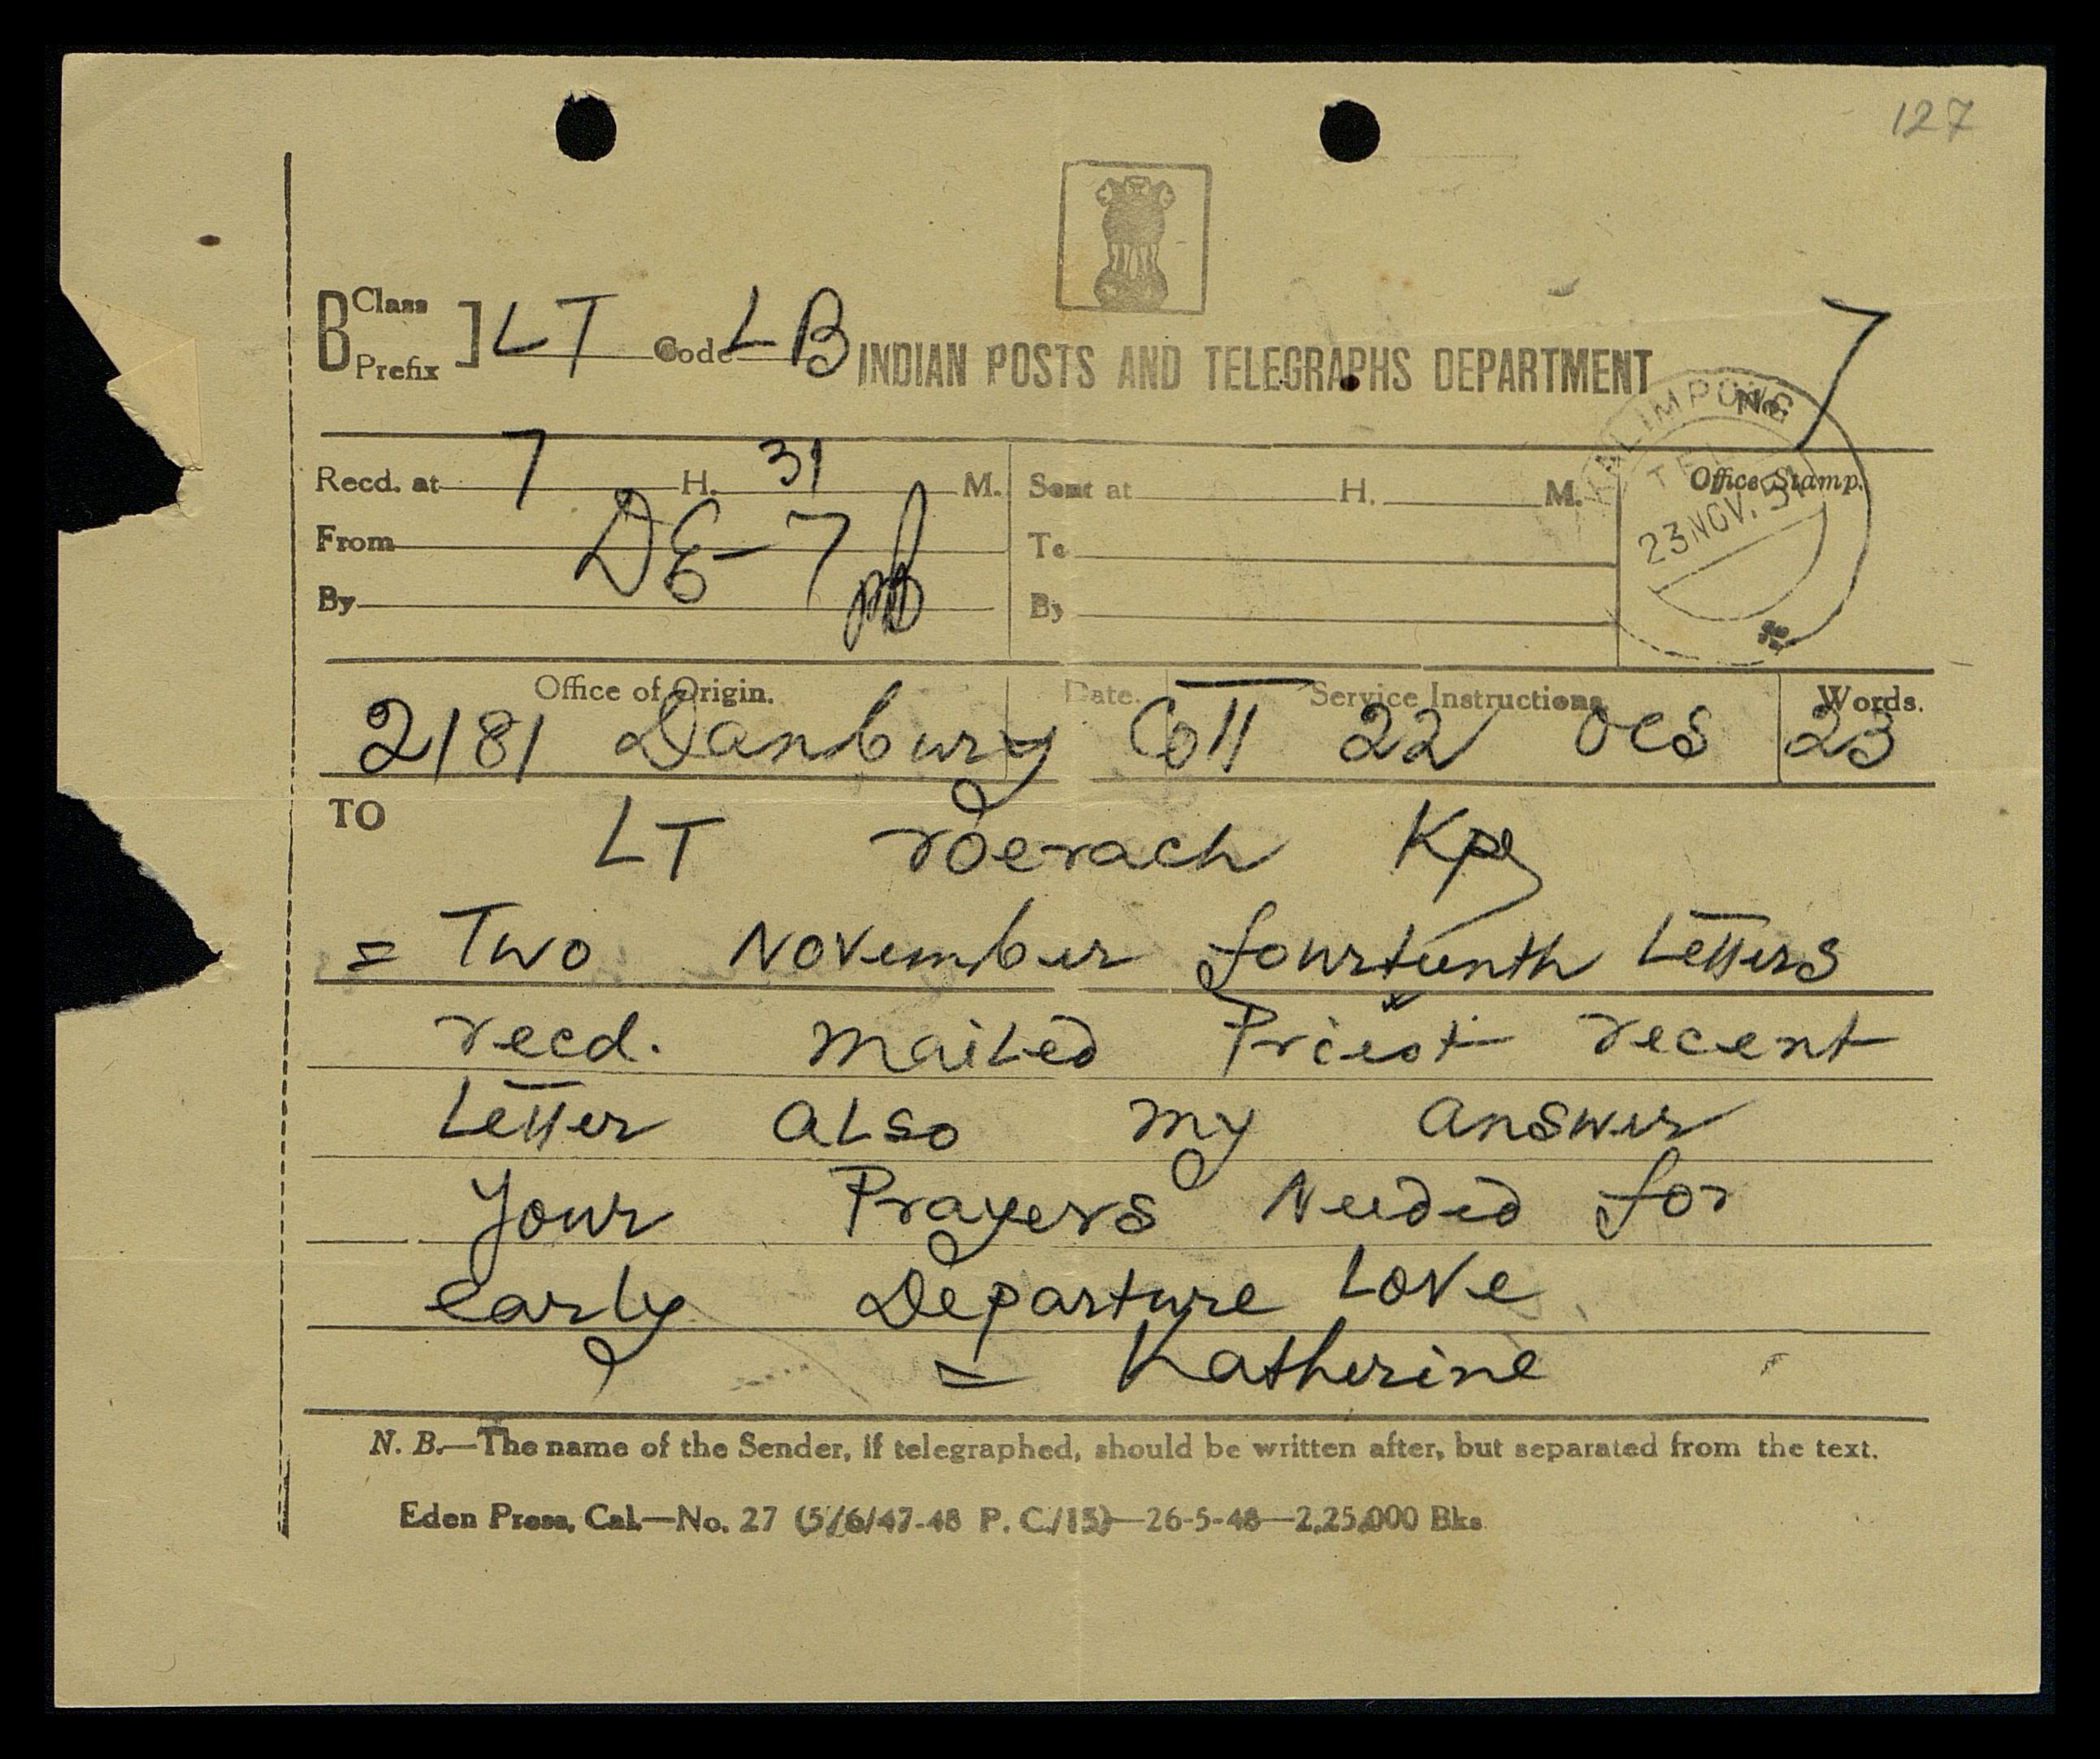 127
B Class Prefix ] LT Code LB INDIAN POSTS AND TELEGRAPHS DEPARTMENT No. 7
KALIMPONG
TEL
23 NOV. 51
Recd. at 7 H. 31 M. Sent at H. M. Office Stamp.
From DE-7 To
By By
Office of Origin. Date. Service Instructions. Words.
2181 Danbury Cott 22 OCS 23
TO LT roerach Kpg
= Two November fourteenth Letters
recd. mailed Priest recent
Letter also my answer
Your Prayers Needed for
early Departure Love
= Katherine
N. B.—The name of the Sender, if telegraphed, should be written after, but separated from the text.
Eden Press, Cal.—No. 27 (5/6/47-48 P. C./15)—26-5-48—2,25,000 Bks